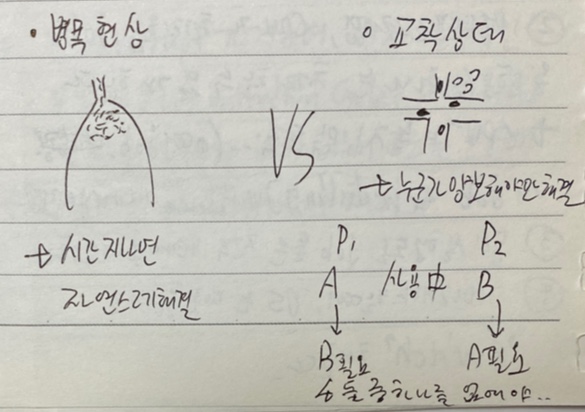 • 병목 현상
∘ 교착상태
VS
→ 누군가 양보해야만 해결
→ 시간 지나면
자연스레 해결
P₁ P₂
A 사용中 B
↓ ↓
B필요 A필요
↳ 둘 중 하나를 없애야..